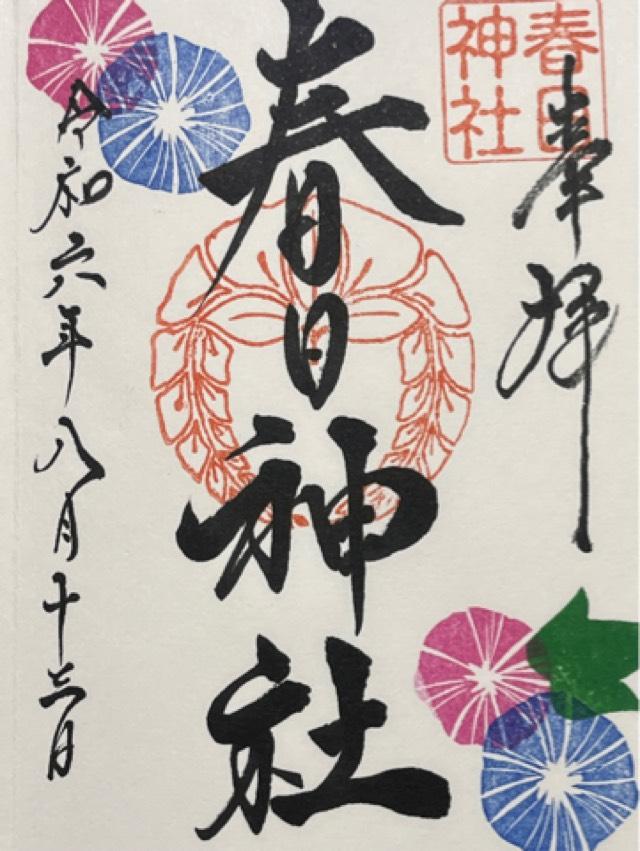 奉拝
春日神社
春日神社
令和六年八月十三日